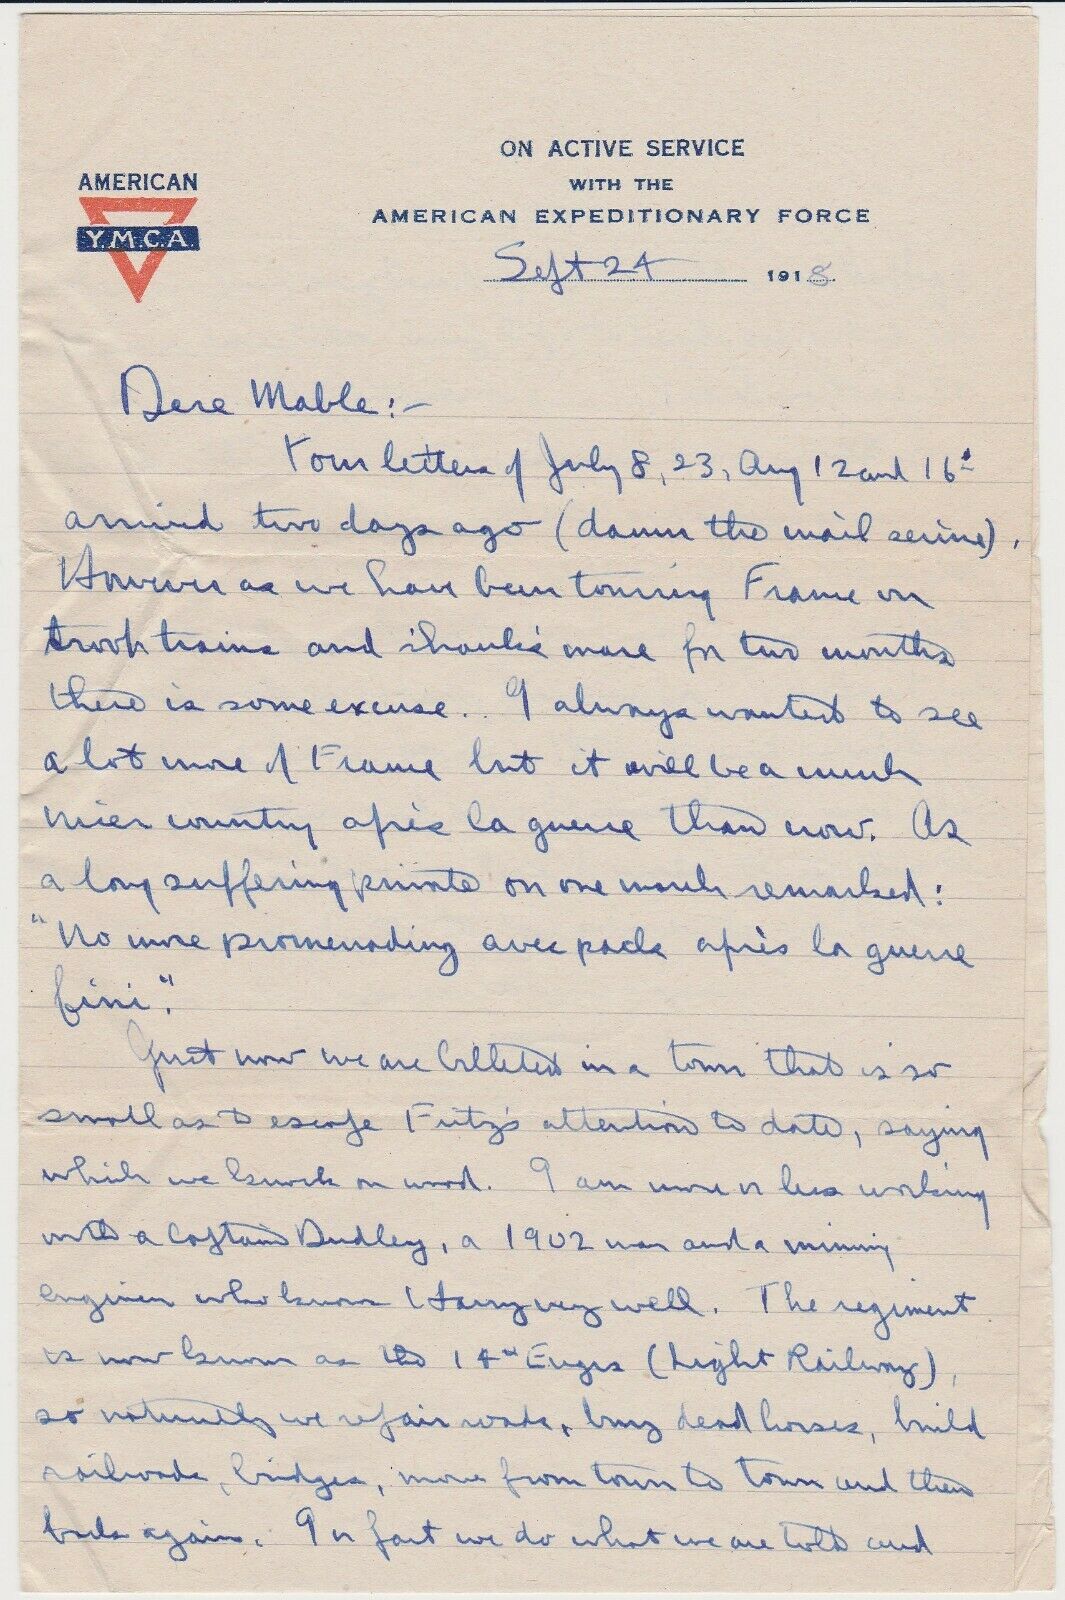 ON ACTIVE SERVICE
WITH THE
AMERICAN EXPEDITIONARY FORCE
AMERICAN
Y.M.C.A.
Sept 24 1918
Dere Mable:-
Your letters of July 8, 23, Aug 12 and 16
arrived two days ago (damn the mail service).
However as we have been touring France on
troop trains and shank's mare for two months
there is some excuse.. I always wanted to see
a lot more of France but it will be a much
nicer country après la guerre than now. As
a long suffering private on one march remarked:
"No more promenading avec pack après la guerre
fini".
Just now we are billeted in a town that is so
small as to escape Fritz's attention to date, saying
which we knock on wood. I am more or less working
with a Captain Dudley, a 1902 man and a mining
engineer who knows Harry very well. The regiment
is now known as the 14th Engrs (Light Railway),
so naturally we repair roads, bury dead horses, build
railroads, bridges, move from town to town and then
back again. In fact we do what we are told and